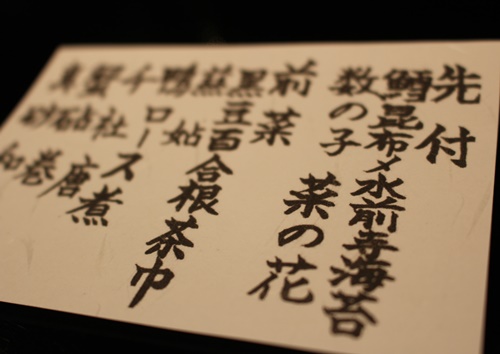 先付
鱈昆布〆水前寺海苔
数の子 菜の花
前菜
黒豆百合根茶巾
慈姑
鴨ロース
千社唐煮
蟹砧巻
真砂和